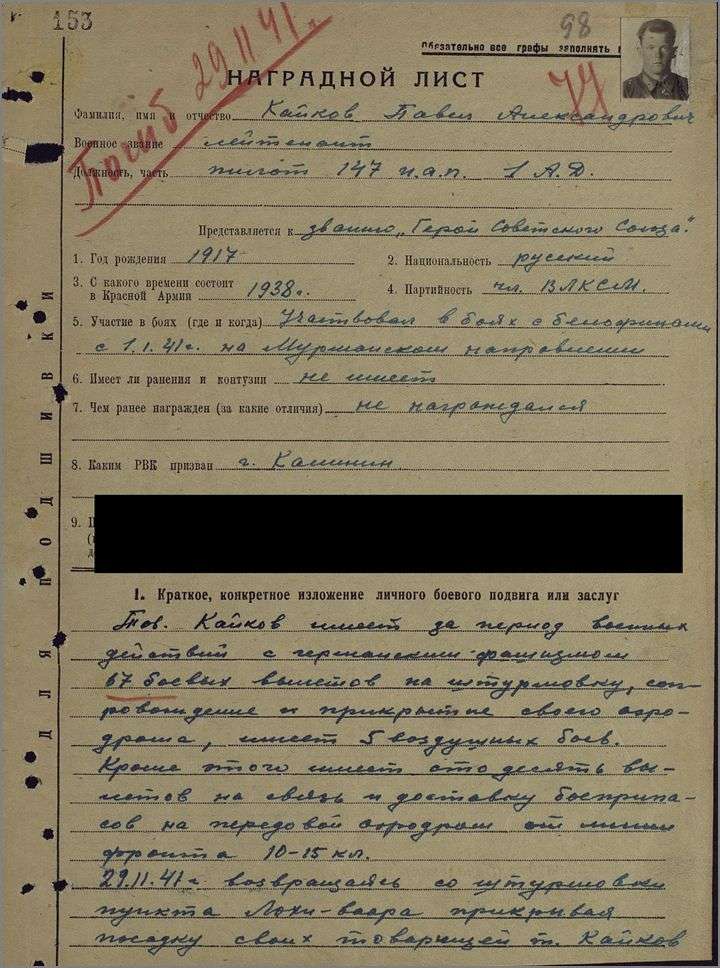 153
98
Обязательно все графы заполнять
Погиб 29.11.41г.
НАГРАДНОЙ ЛИСТ
Фамилия, имя и отчество Кайков Павел Александрович
Военное звание лейтенант
Должность, часть пилот 147 и.а.п. 1 А.Д.
Представляется к званию „Герой Советского Союза".
1. Год рождения 1917
2. Национальность русский
3. С какого времени состоит
в Красной Армии 1938г.
4. Партийность чл. ВЛКСМ.
5. Участие в боях (где и когда) Участвовал в боях с белофинами
с 1.1.41г. на Мурманском направлении
6. Имеет ли ранения и контузии не имеет
7. Чем ранее награжден (за какие отличия) не награждался
8. Каким РВК призван г. Калинин.
9.
ДЛЯ ПОДШИВКИ
I. Краткое, конкретное изложение личного боевого подвига или заслуг
Тов. Кайков имеет за период военных
действий с германским фашизмом
67 боевых вылетов на штурмовку, соп-
ровождение и прикрытие своего аэро-
дрома, имеет 5 воздушных боев.
Кроме этого имеет сто десять вы-
летов на связь и доставку боеприпа-
сов на передовой аэродром от линии
фронта 10-15 кл.
29.11.41г. возвращаясь со штурмовки
пункта Лохи-ваара прикрывая
посадку своих товарищей т. Кайков